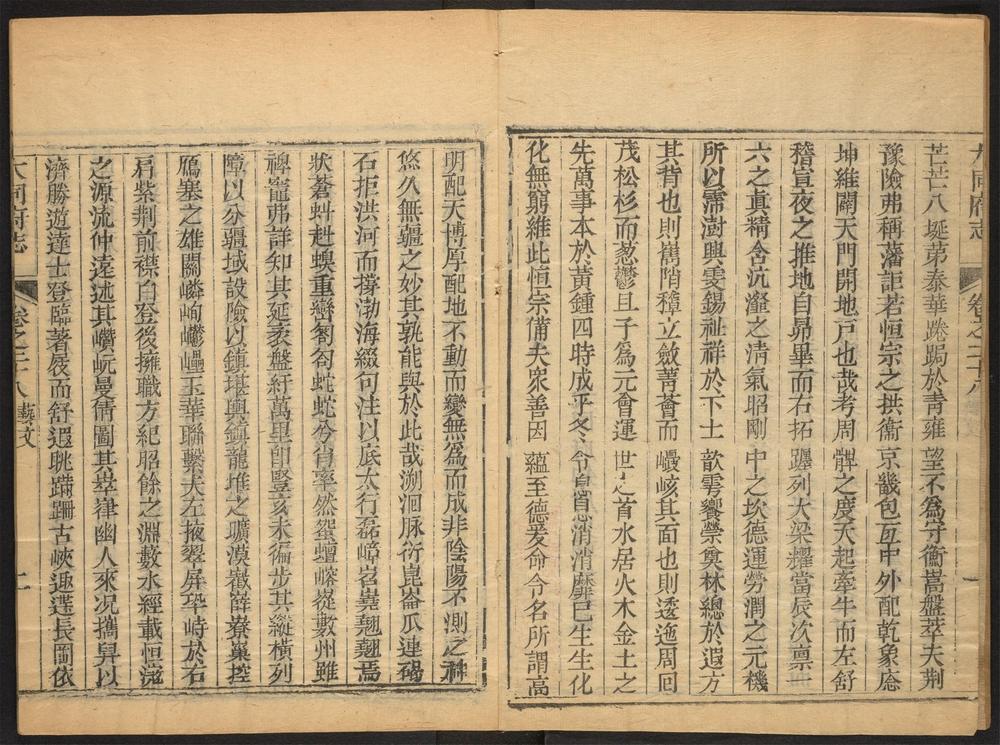 大同府志 卷之二十八
芒芒八埏第泰華踡跼於青雍望不爲守衡嵩盤萃夫荆
豫險弗稱藩詎若恒宗之拱衞京畿包亙中外配乾象應
坤維闢天門開地戸也哉考周髀之度天起牽牛而左舒
稽宣夜之推地自昴畢而右拓躔列大梁耀當辰次禀一
六之真精含沆瀣之清氣昭剛中之坎德運勞潤之元機
所以霈澍興雯錫祉祥於下士歆雩饗禜奠林總於遐方
其背也則嶲陗穜立斂菁薈而巀峐其面也則透迤周囘
茂松杉而葱鬱且子爲元會運世之首水居火木金土之
先萬事本於黃鍾四時成乎冬令息消消靡巳生生化
化無窮維此恒宗備夫衆善因蘊至德爰命令名所謂高
明配天博厚配地不動而變無爲而成非陰陽不測之神
悠久無疆之妙其孰能與於此哉溯洄脉衍崑崙瓜連碣
石拒洪河而撐渤海綴句注以底太行磊嵂岧嶤翹翹焉
狀蒼虯赳螑重巒匒匌蛇蛇兮肖率然巹蟺嵱嵷數州雖
禆竈弗詳知其延袤盤紆萬里卽豎亥未徧步其縱橫列
障以分疆域設險以鎮堪輿鎮龍堆之曠漠嶽薛寮巢控
鴈塞之雄關嶙峋鬱壘玉華聯繫夫左掖翠屏孕峙於右
肩紫荆前襟白登後擁職方紀昭餘之淵藪水經載恒滱
之源流仲遠述其巑岏曼倩圖其崒嵂幽人來况攜舁以
濟勝遊達士登臨著屐而舒遐眺蹣跚古峽遞蹚長岡依
大同府志 卷之二十八 藝文 二